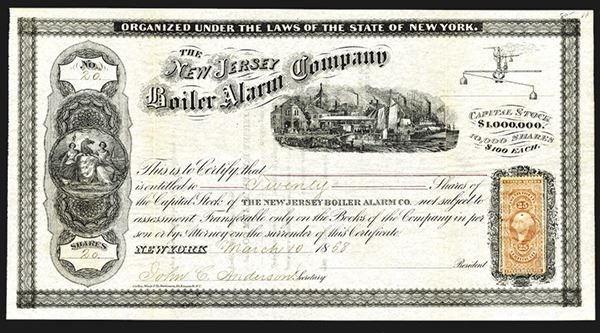 ORGANIZED UNDER THE LAWS OF THE STATE OF NEW YORK.
No.
20.
THE
NEW JERSEY
Boiler Alarm Company
CAPITAL STOCK
$1,000,000.
10,000 SHARES
$100 EACH.
This is to Certify that
is entitled to Twenty Shares of
the Capital Stock of THE NEW JERSEY BOILER ALARM CO. not subject to
assessment. Transferable only on the Books of the Company in per
son or by Attorney on the surrender of this Certificate.
SHARES
20.
NEW YORK March 10 1868
John C. Anderson Secretary
President
25
25